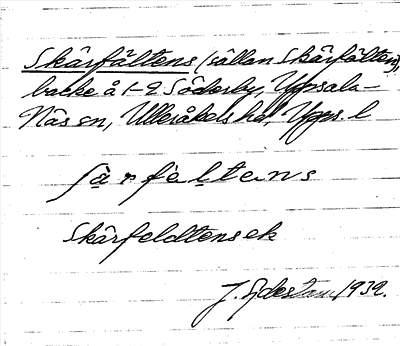 Skärfältens (sällan Skärfälten),
backe å 1-2 Söderby, Uppsala-
Näs sn, Ulleråkers hd, Upps. l
ʃärfèltens
Skärfeldtensek
J. 1939.